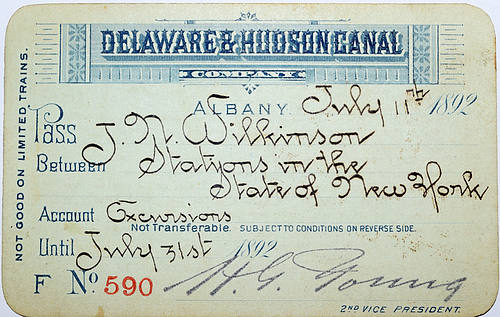 DELAWARE & HUDSON CANAL
COMPANY
ALBANY July 11th 1892
Pass J. N. Wilkinson
Between Stations in the
State of New York
Account Excursions
Not Transferable. SUBJECT TO CONDITIONS ON REVERSE SIDE.
Until July 31st 1892
F No. 590 H. G. Young
2ND VICE PRESIDENT.
NOT GOOD ON LIMITED TRAINS.